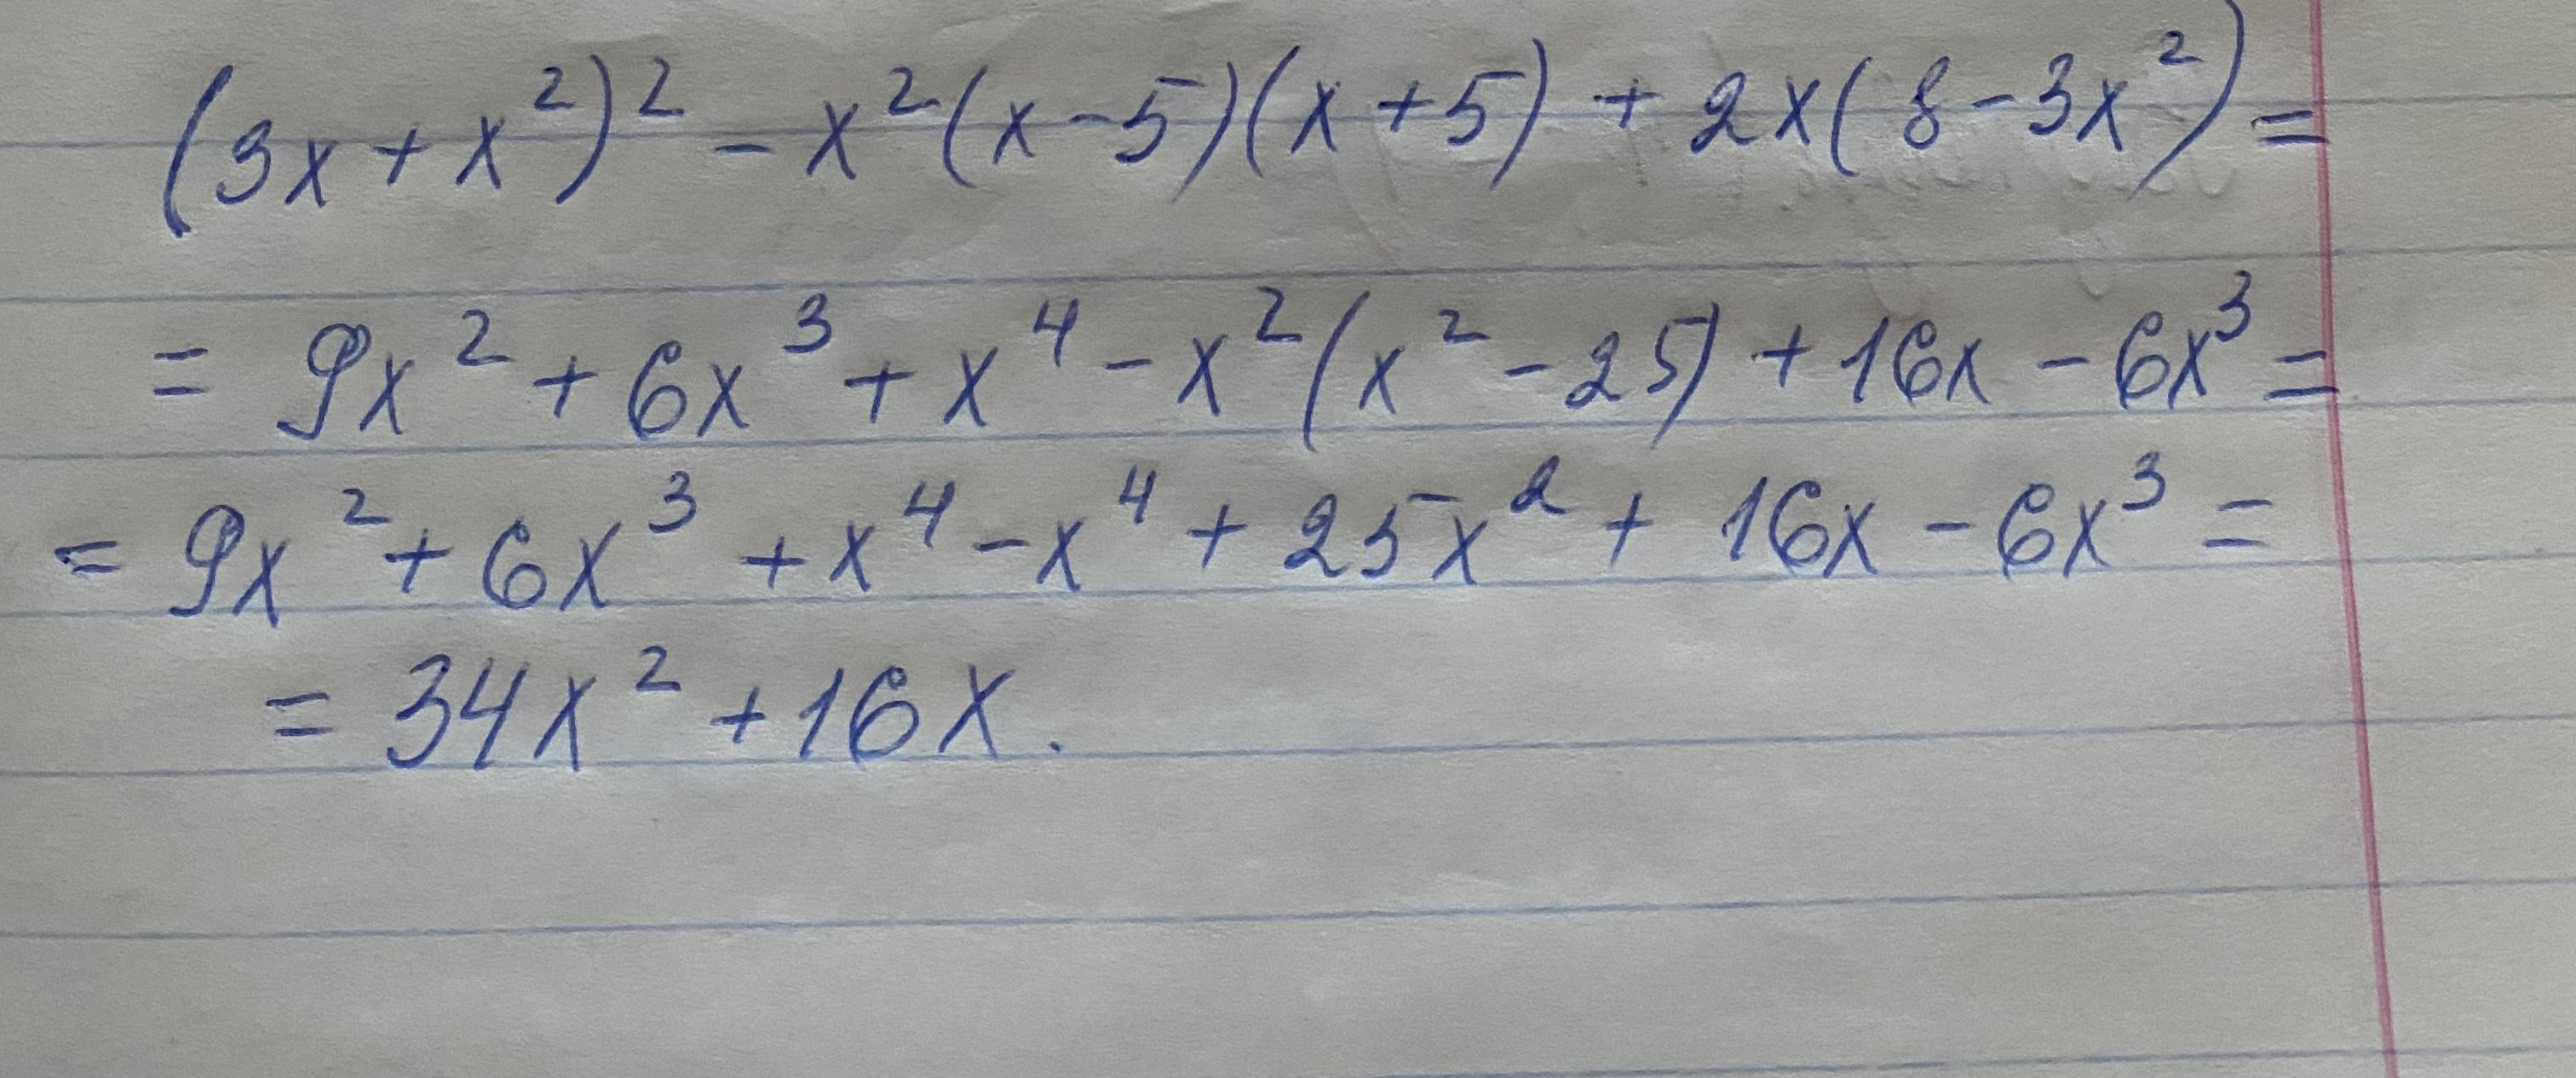 (3x + x²)² - x²(x-5)(x+5) + 2x(8-3x²) =
= 9x² + 6x³ + x⁴ - x²(x² - 25) + 16x - 6x³ =
= 9x² + 6x³ + x⁴ - x⁴ + 25x² + 16x - 6x³ =
= 34x² + 16x.